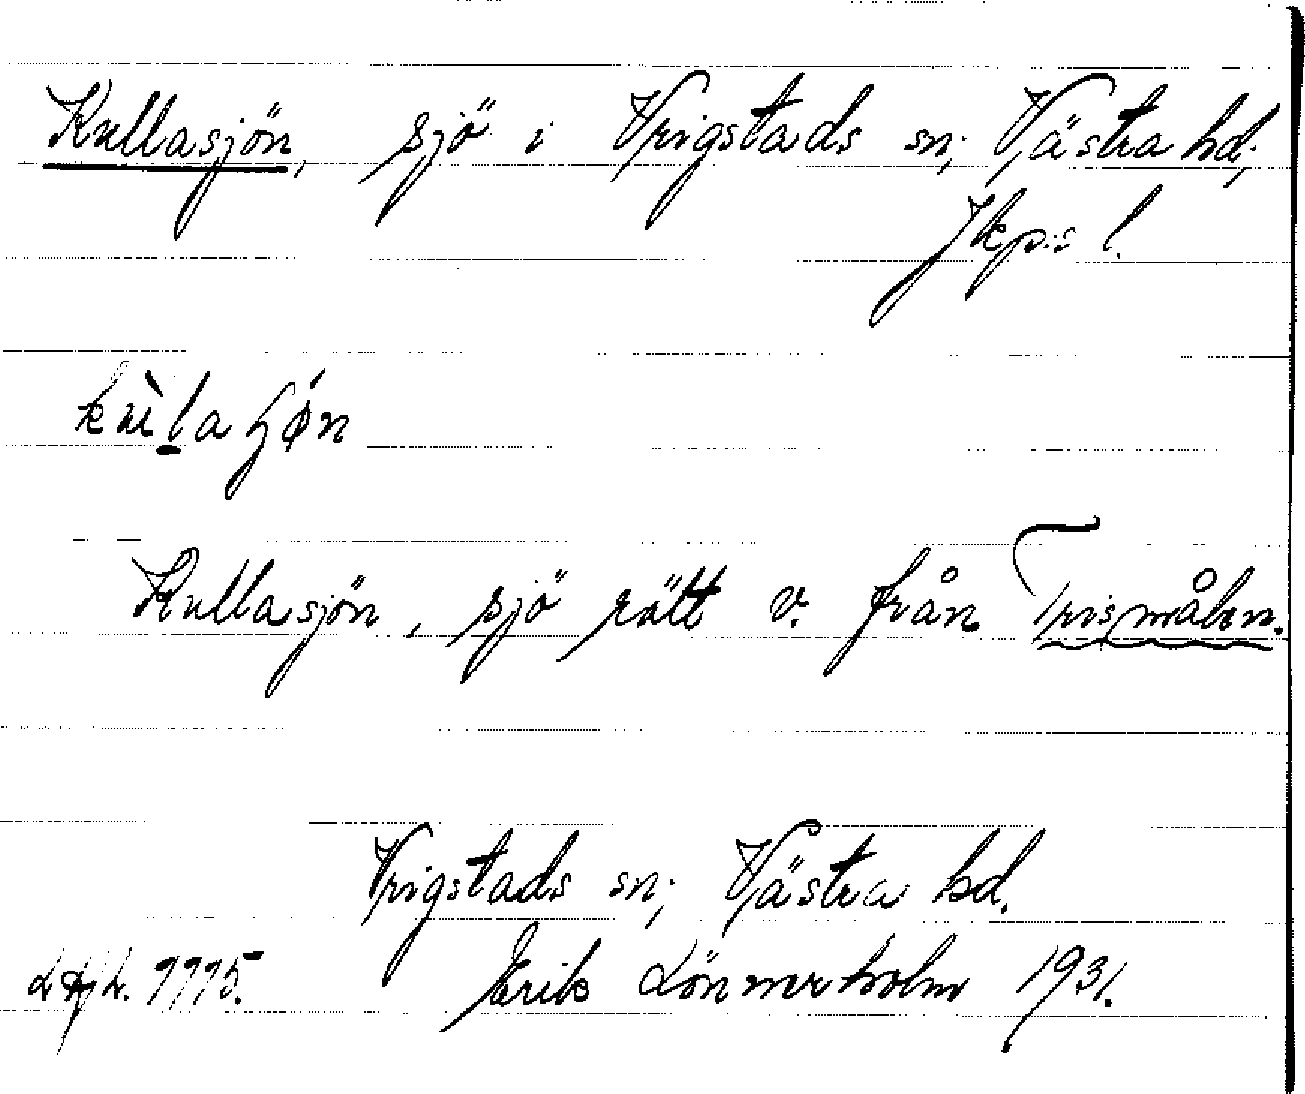 Kullasjön, sjö i Vrigstads sn; Västra hd;
Jkp:s l.
kùlaɧøn
Kullasjön, sjö rätt v. från Trismålen.
Vrigstads sn; Västra hd.
Erik Lönnerholm 1931.